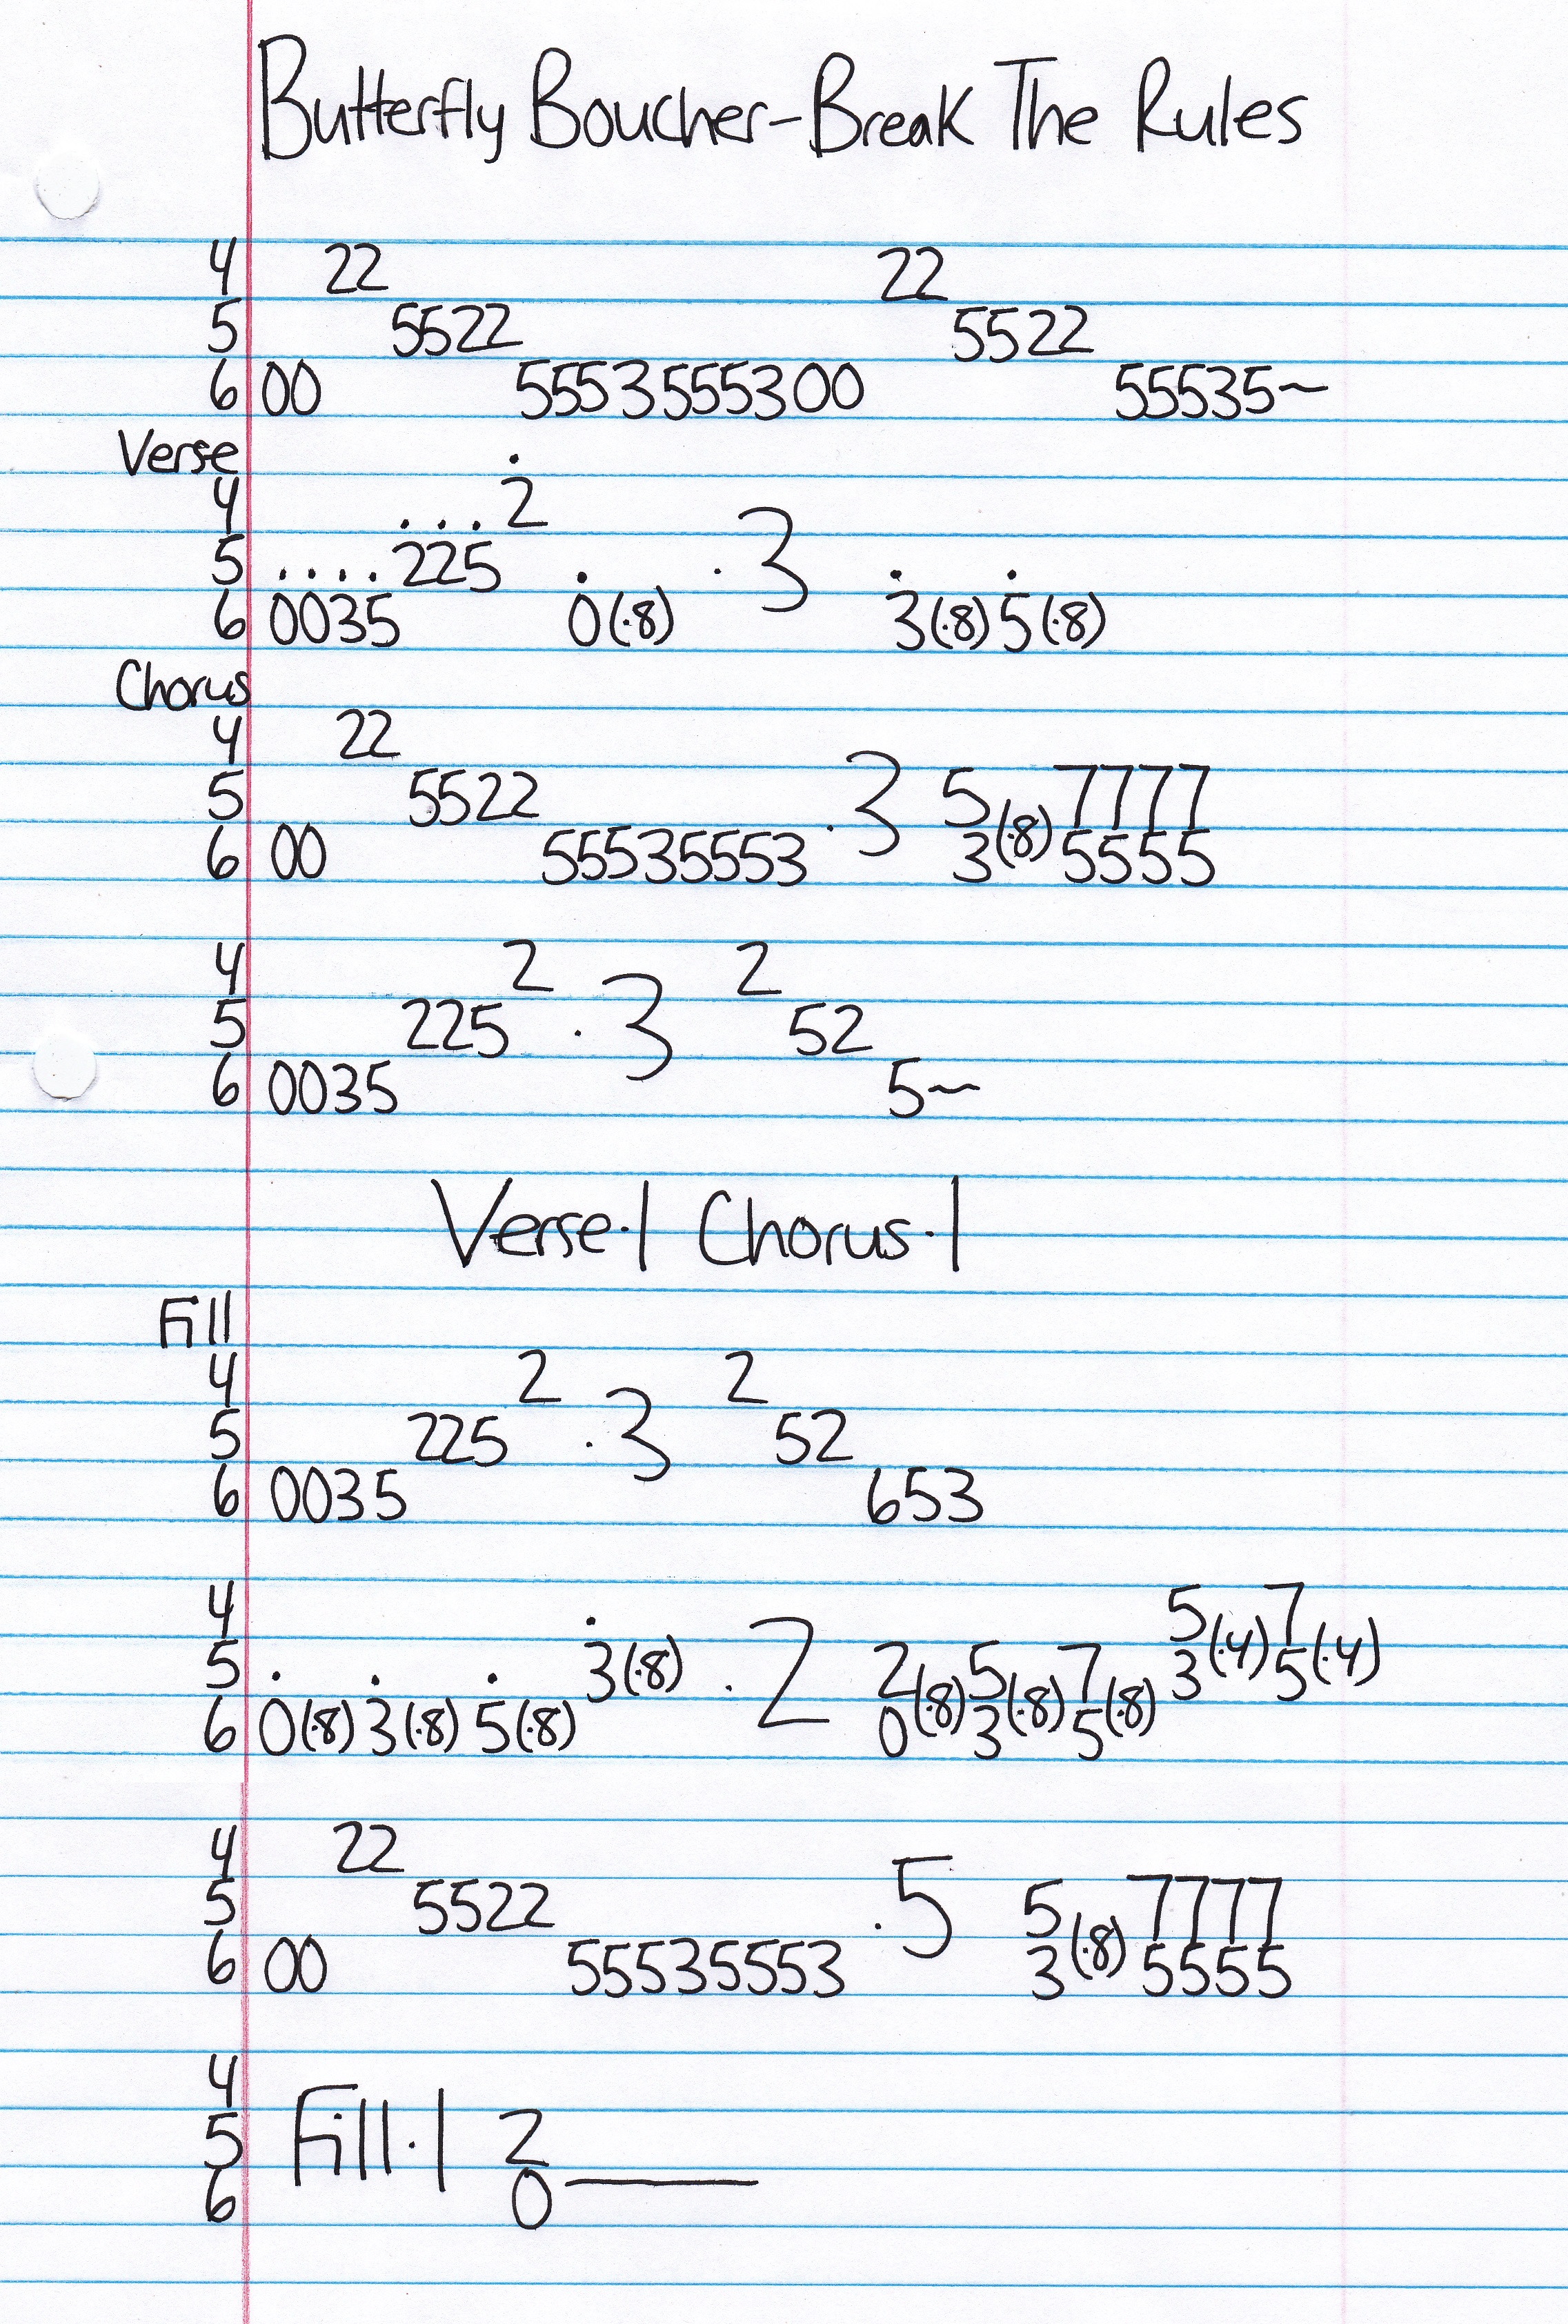 Butterfly Boucher-Break The Rules
4 22 22
5 5522 5522
6 00 5553555300 55535~
Verse
4 ... 2
5 .... 225 . . 3 . .
6 0035 0(·8) 3(·8) 5(·8)
Chorus
4 22
5 5522 .3 5 7777
6 00 55535553 3(·8)5555
4 2 2
5 225 .3 52
6 0035 5~
Verse·1 Chorus·1
Fill
4 2 2
5 225 .3 52
6 0035 653
4 . 5 7
5 . . . 3(·8) .2 2 5 7 3(·4)5(·4)
6 0(·8)3(·8)5(·8) 0(·8)3(·8)5(·8)
4 22
5 5522 .5 5 7777
6 00 55535553 3(·8)5555
4
5 Fill·1 2
6 0___